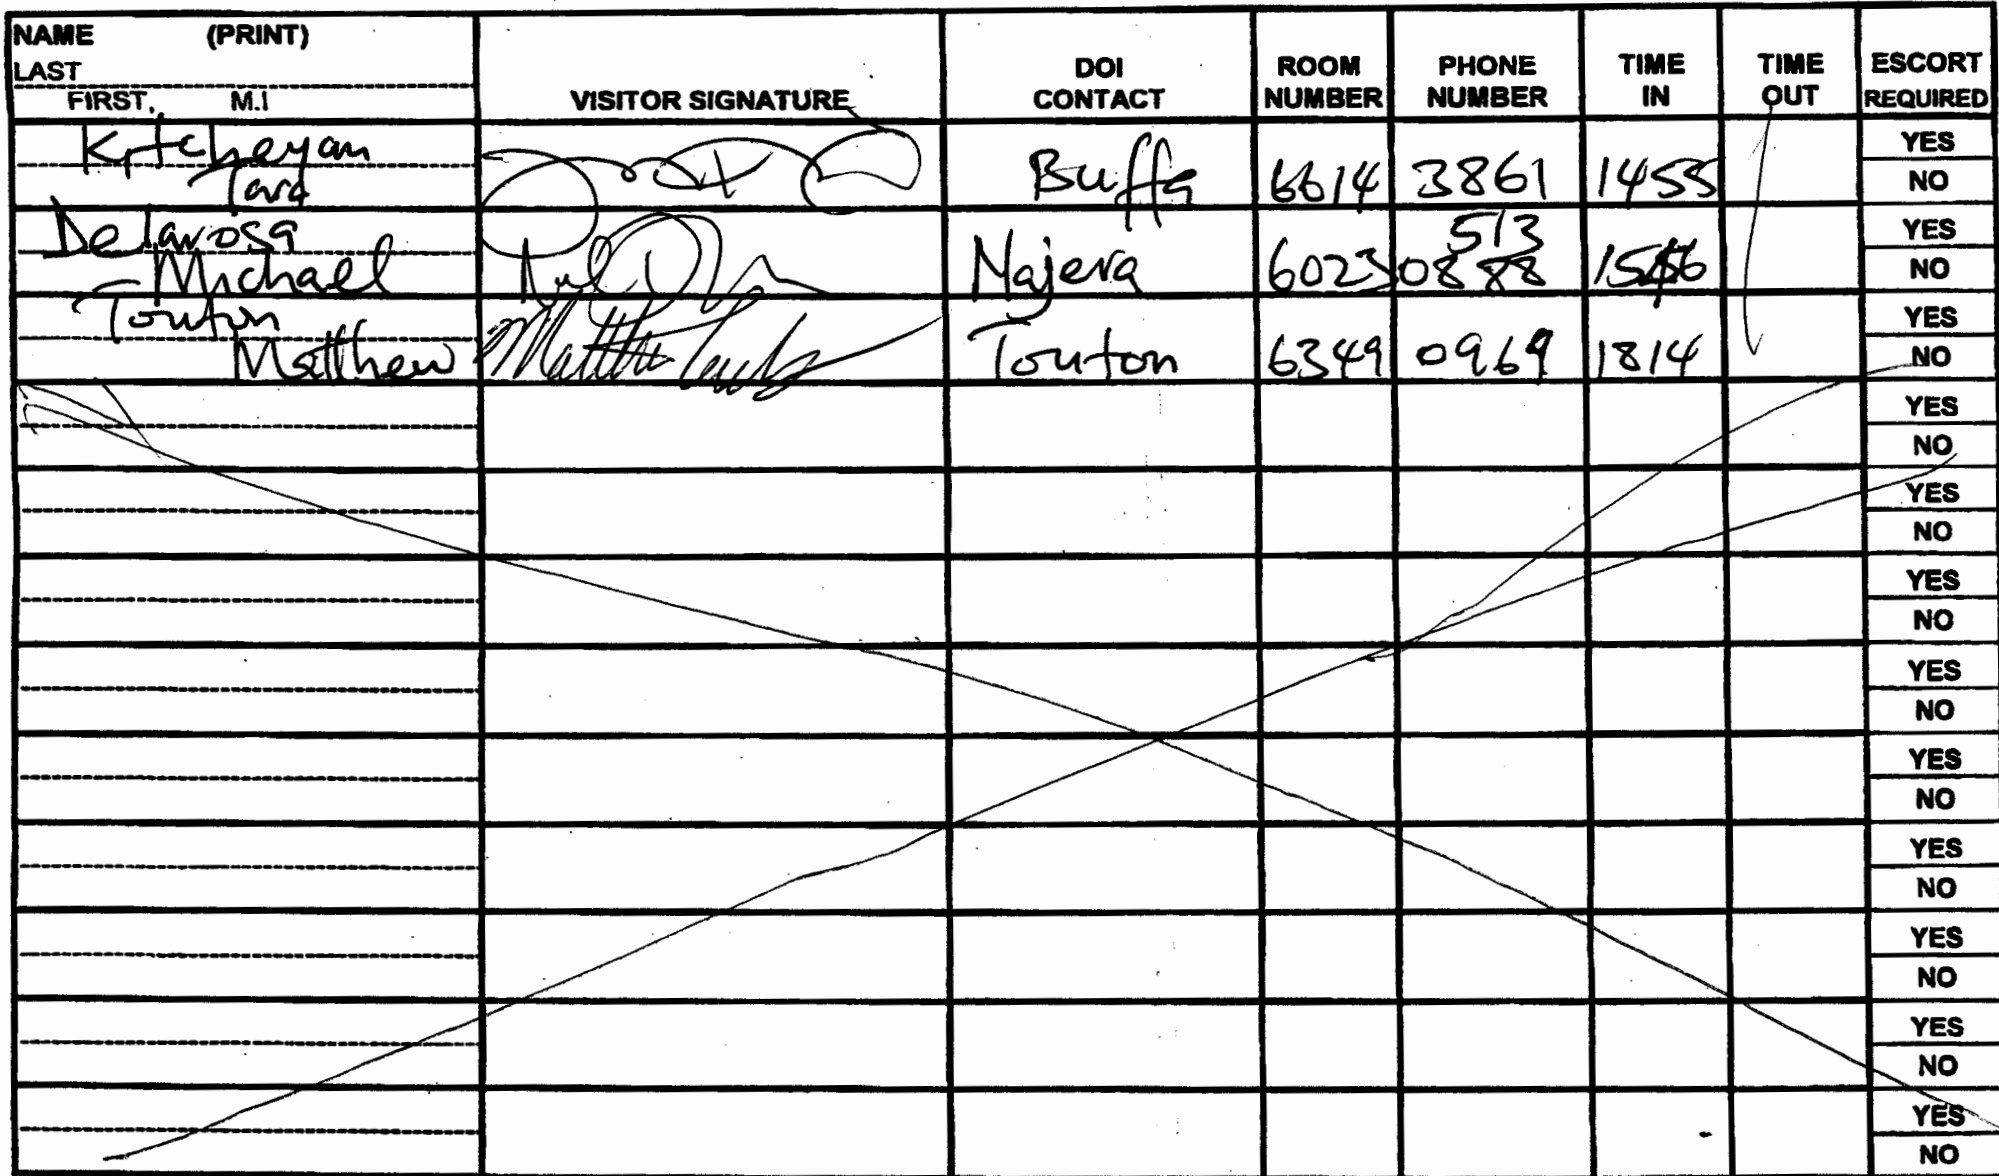 NAME (PRINT)
LAST
FIRST, M.I
VISITOR SIGNATURE
DOI CONTACT
ROOM NUMBER
PHONE NUMBER
TIME IN
TIME OUT
ESCORT REQUIRED
Kitcheyan
Tara
Buffa 6614 3861 1455
YES
NO
Delarosa
Michael
Najera 6023 513 0888
YES
NO
Touton
Matthew
Touton 6349 0969 1814
YES
NO
YES
NO
YES
NO
YES
NO
YES
NO
YES
NO
YES
NO
YES
NO
YES
NO
YES
NO